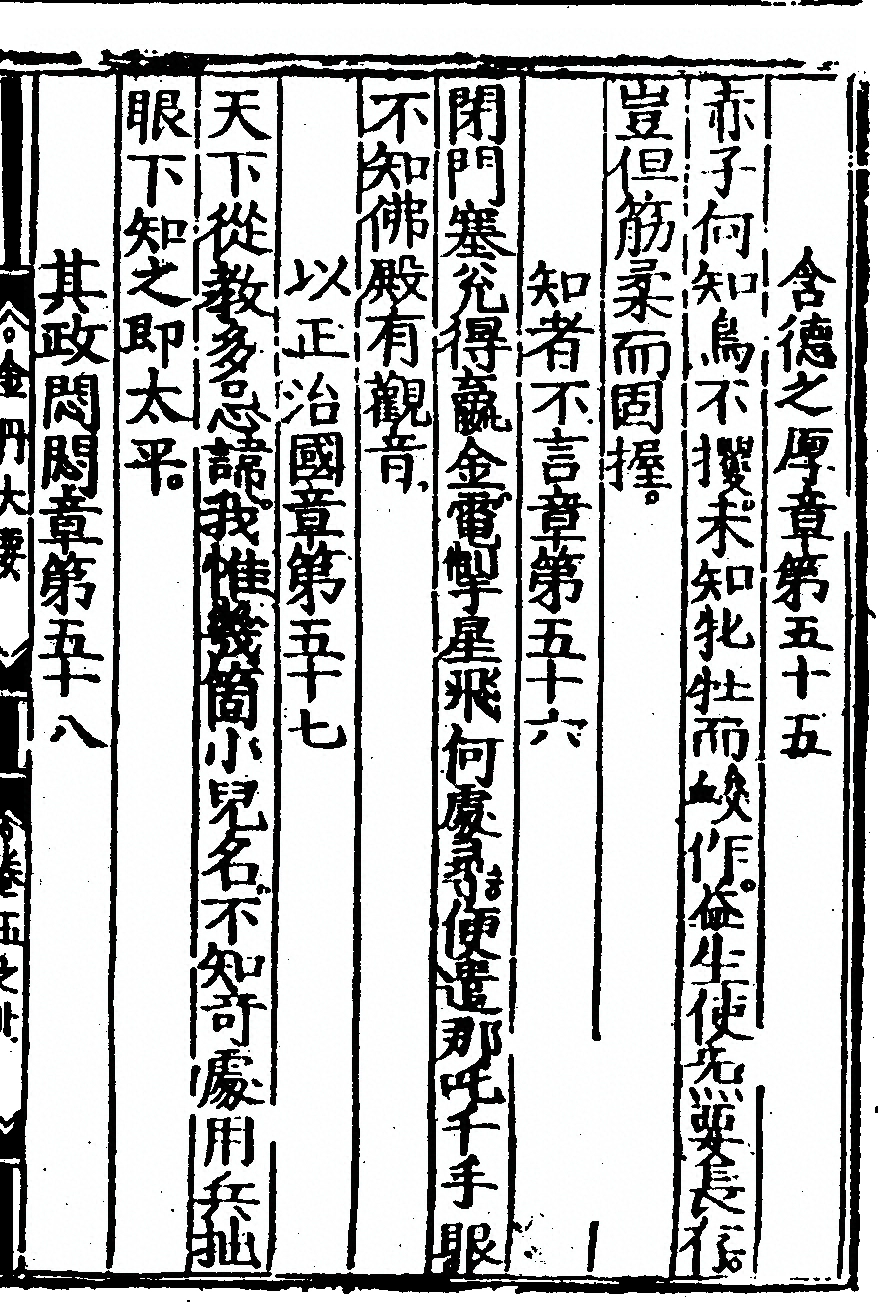 含德之厚章第五十五
赤子何知鳥不攫。未知牝牡而㕙作。益生使炁要長存。
豈但筋柔而固握。
知者不言章第五十六
閉門塞兊得贏金。電掣星飛何處尋。便遣那吒千手眼
不知佛殿有觀音、
以正治國章第五十七
天下從教多忌諱。我惟幾箇小兒名。不知奇處用兵拙
眼下知之即太平。
其政悶悶章第五十八
金丹大要 卷五之